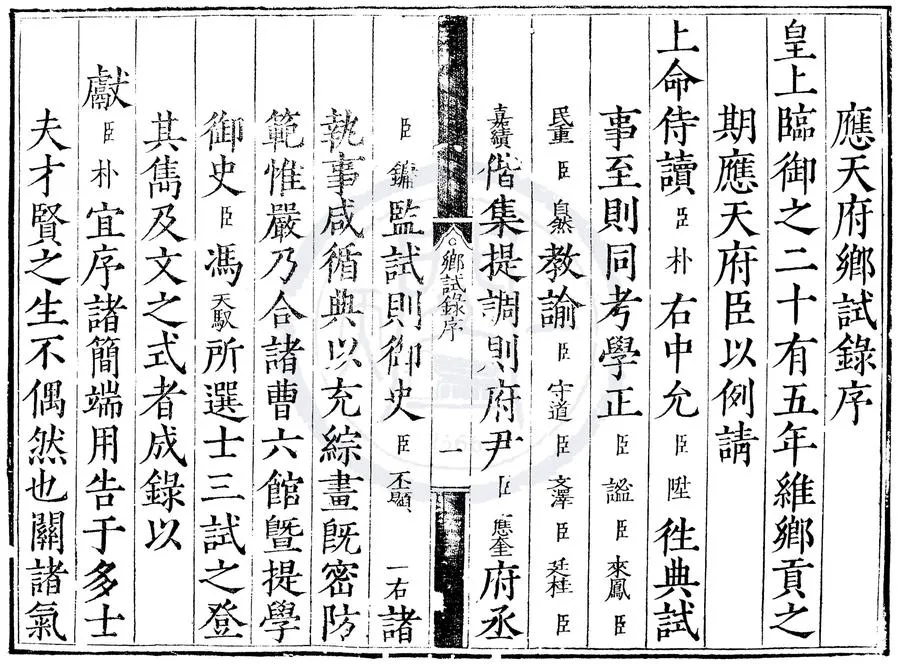 應天府鄉試錄序
皇上臨御之二十有五年維鄉貢之
期應天府臣以例請
上命侍讀臣朴右中允臣陞徃典試
事至則同考學正臣謐臣來鳳臣
民重臣自然教諭臣守道臣文澤臣廷桂臣
嘉績偕集提調則府尹臣應奎府丞
鄉試錄序
一
臣鏞監試則御史臣丕顯一右諸
執事咸循典以充綜畫既密防
範惟嚴乃合諸曹六館曁提學
御史臣馮天馭所選士三試之登
其雋及文之式者成錄以
獻臣朴宜序諸簡端用告于多士
夫才賢之生不偶然也關諸氣